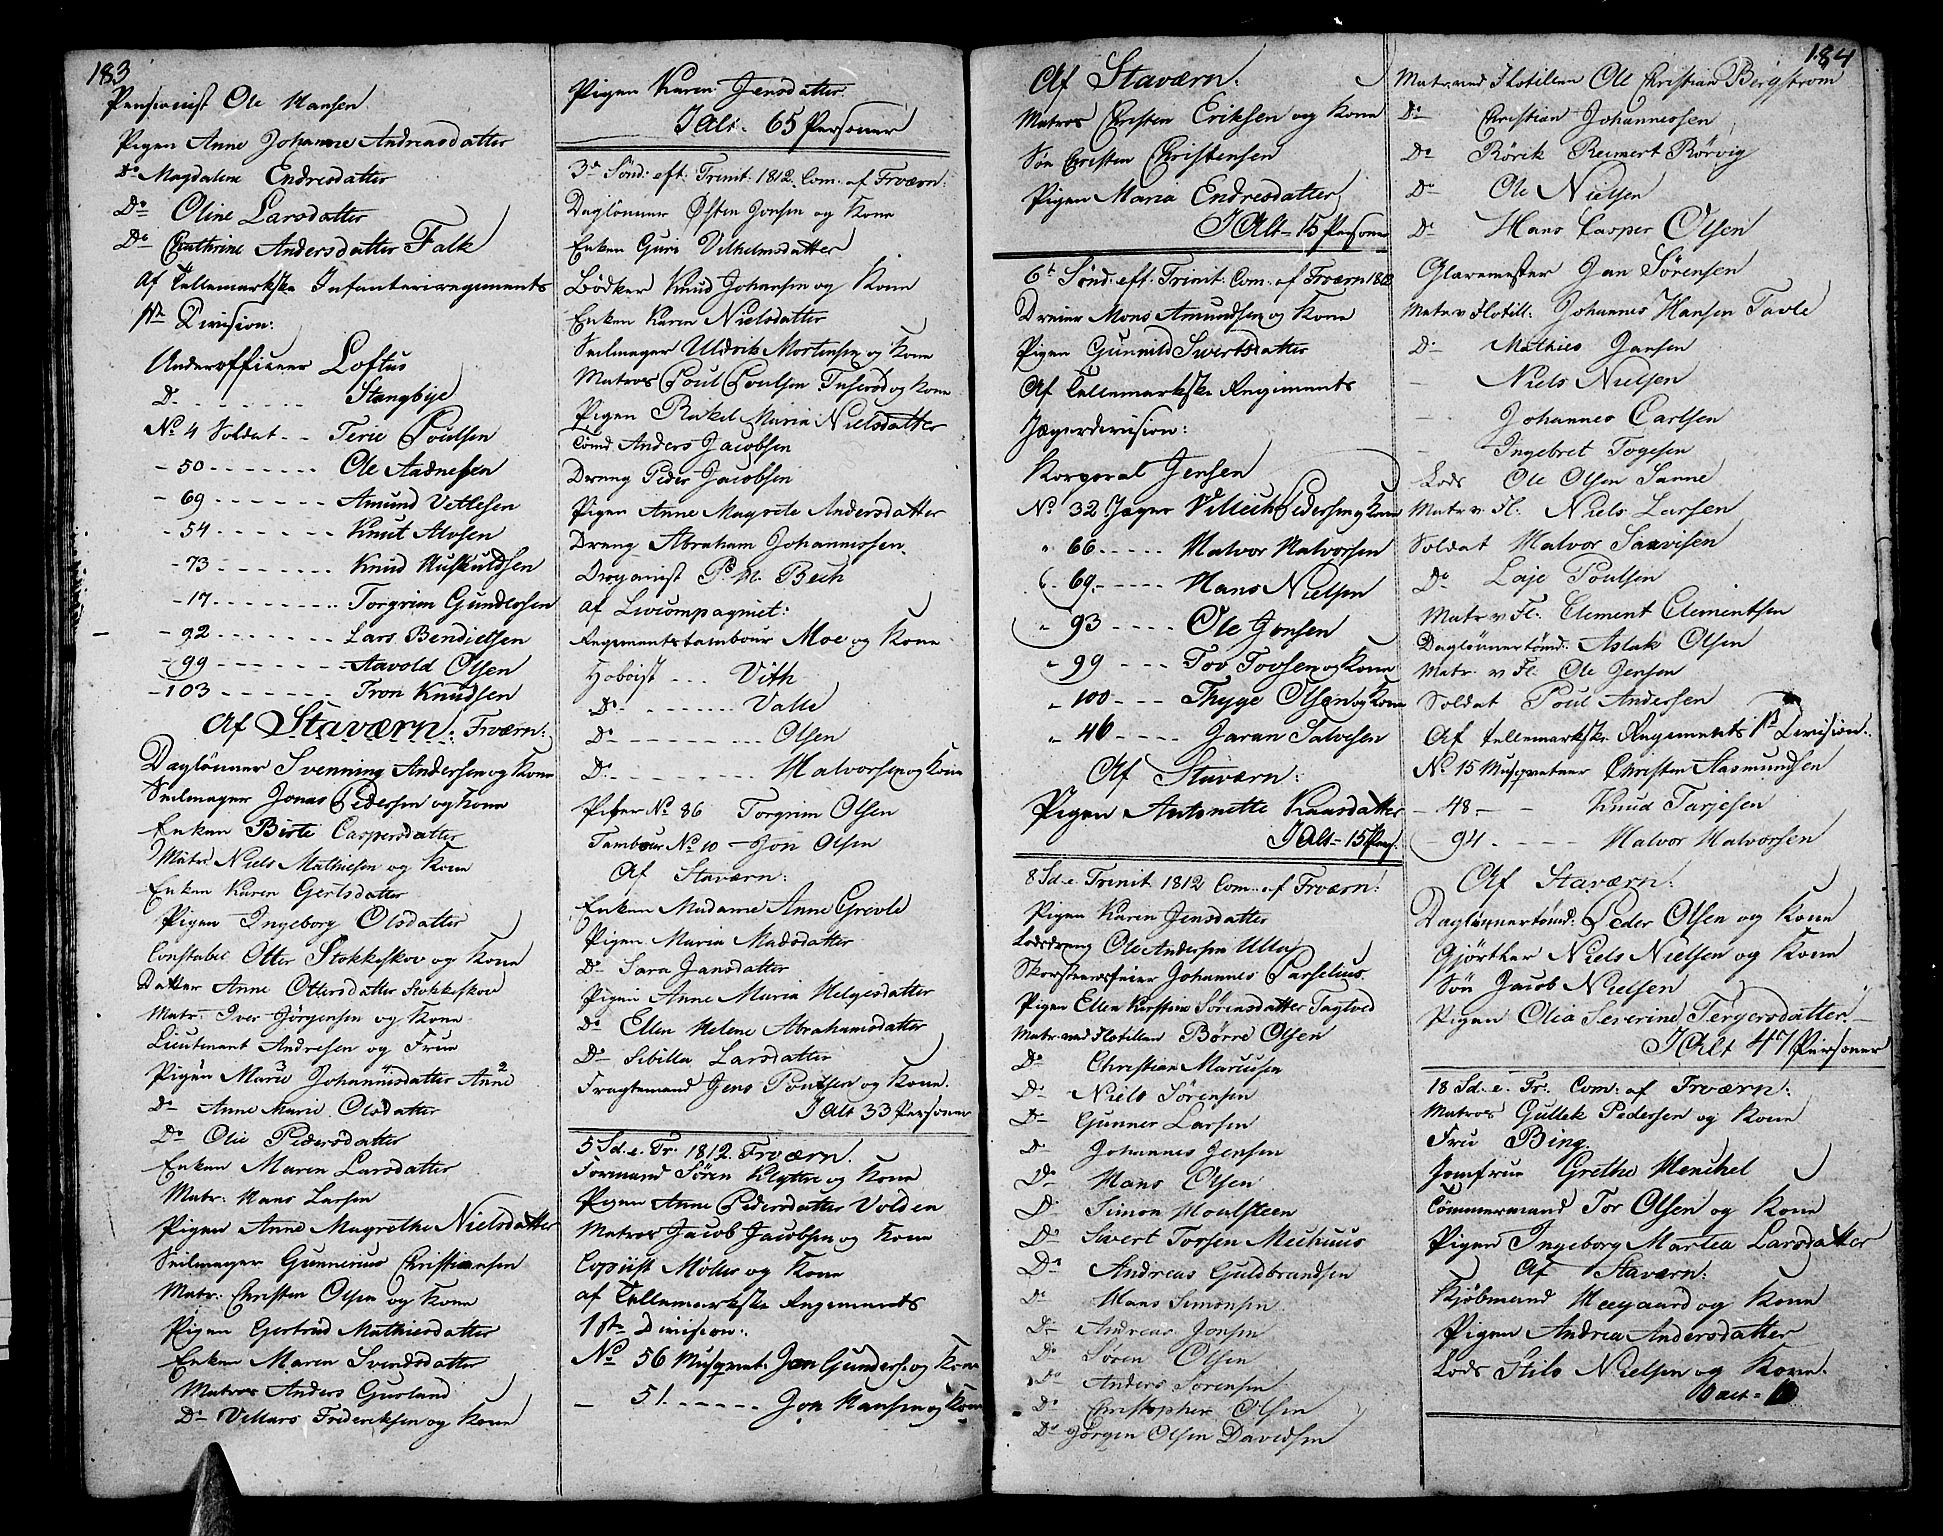 183
Pensionist Ole Hansen
Pigen Anne Johanne Andreasdatter
Do Magdalene Endresdatter
Do Oline Larsdatter
Do Cathrine Andersdatter Falk
Af Tellemarkske Infanteriregiments
1ste Division:
Underofficeer Loftus
Do Stangbye
No 4 Soldat Terie Poulsen
- 50 Ole Aadnesen
- 69 Amund Vetlesen
- 54 Knut Alvsen
- 73 Knud Huskuldsen
- 17 Torgrim Gundersen
- 92 Lars Bendictsen
- 99 Aavold Olsen
- 103 Tron Knudsen
Af Staværn: Frværn:
Daglönner Svenning Andersen og Kone
Seilmager Jonas Pedersen og Kone
Enken Birte Caspersdatter
Matr: Niels Mathiesen og Kone
Enken Karen Gertsdatter
Pigen Ingeborg Olsdatter
Constabel Otter Stokkeskov og Kone
Datter Anne Ottersdatter Stokkeskov
Matr: Iver Jörgensen og Kone
Lieutenant Andresen og Frue
Pigen Marie Johannesdatter Anne
Do Anne Marie Olsdatter
Do Olie Pedersdatter
Enken Maren Larsdatter
Matr: Hans Larsen
Pigen Anne Magrethe Nielsdatter
Seilmager Gunnerius Christiansen
Matr: Christen Olsen og Kone
Pigen Gertrud Mathiesdatter
Enken Maren Svendsdatter
Matros Anders Gusland
Do Villars Frederiksen og Kone
Pigen Karen Jensdatter
I Alt 65 Personer
3die Sönd: eft: Trinit: 1812. Com: af Frværn:
Daglönner Østen Jonsen og Kone
Enken Guri Vilhelmsdatter
Bödker Knud Johansen og Kone
Enken Karen Nielsdatter
Seilmager Uldrik Mortensen og Kone
Matros Poul Poulsen og Kone
Pigen Rakel Maria Nielsdatter
Tömd Anders Jacobsen
Dreng Peder Jacobsen
Pigen Anne Magrete Andersdatter
Dreng Abraham Johannessen
Organist P. H. Bech
af Livcompagniet:
Regimentstambour Moe og Kone
Hoboist Vith
Do Valle
Do Olsen
Do Halvorsen og Kone
Piber No 86 Torgrim Olsen
Tambour No 10 - Jon Olsen
Af Staværn:
Enken Madame Anne Grevle
Pigen Maria Madsdatter
Do Sara Jansdatter
Pigen Anne Maria Helgesdatter
Do Ellen Helene Abrahamsdatter
Do Sibilla Larsdatter
Fragtemand Jens Poulsen og Kone
I Alt 33 Personer
5 Sd. e. Tr. 1812. Frværn.
Formand Sören Klyttre og Kone
Pigen Anne Pedersdatter Volden
Matros Jacob Jacobsen og Kone
Copiist Möller og Kone
af Tellemarkske Regiments
1ste Division:
No 56 Musquet: Jon Gunders: og Kone
- 51. Jon Hansen og Kone
Af Staværn:
Matros Christen Eriksen og Kone
Sön Christen Christensen
Pigen Maria Endresdatter
I Alt - 15 Personer
6te Sönd: eft: Trinit: Com: af Frværn 1812
Dreier Mons Amundsen og Kone
Pigen Gunnild Sivertsdatter
Af Tellemarkske Regiments
Jægerdivision:
Korporal Jensen
No 32 Jæger Villich Pedersen og Kone
" 66 Halvor Halvorsen
" 69 Hans Nielsen
" 93 Ole Jonsen
" 99 Tov Tovsen og Kone
" 100 Thyge Olsen og Kone
" 46 Jaran Salvesen
Af Staværn:
Pigen Antonette Knudsdatter
I Alt - 15 Pers:
8 Sd. e. Trinit 1812 Com: af Frværn:
Pigen Karen Jensdatter
Lodsdreng Ole Andersen Ulla
Skorsteensfeier Johannes Parselius
Pigen Ellen Kirstine Sörensdatter Tagtved
Matr: ved Flotillen Börre Olsen
Do Christian Marcusen
Do Niels Sörensen
Do Gunner Larsen
Do Johannes Jensen
Do Hans Olsen
Do Simon Houlsteen
Do Sivert Torsen
Do Andreas Guldbrandsen
Do Hans Simonsen
Do Andreas Jonsen
Do Sören Olsen
Do Anders Sörensen
Do Christopher Olsen
Do Jörgen Olsen Davidsen
184
Matr: ved Flotillen Ole Christian Bergstrom
Do Christian Johannessen
Do Rörik Reimert Rörvig
Do Ole Nielsen
Do Hans Casper Olsen
Glarmester Jan Sörensen
Matr: v Flotill: Johannes Hansen Tavle
Do Mathies Jansen
- Niels Nielsen
- Johannes Carlsen
- Ingebret Togesen
Lods Ole Olsen Sanne
Matr v. Fl. Niels Larsen
Soldat Halvor Saavesen
Do Laje Poulsen
Matr v Fl: Clement Clementsen
Daglönnertömd: Aslak Olsen
Matr. v Fl: Ole Jensen
Soldat Poul Andersen
Af tellemarkske Regiments 1ste Division:
No 15 Musqueteer Christen Aasmundsen
- 48 - Knud Tarjesen
- 94 Halvor Halvorsen
Af Staværn:
Daglönnertömd: Peder Olsen og Kone
Gjörtler Niels Nielsen og Kone
Sön Jacob Nielsen
Pigen Olia Severine Tergersdatter
I Alt 47 Personer
18 Sd. e. Tr: Com: af Frværn:
Matros Gullek Pedersen og Kone
Fru Bing
Jomfrue Grethe Henckel
Tömmermand Tor Olsen og Kone
Pigen Ingeborg Martea Larsdatter
Af Staværn:
Kjöbmand Heegaard og Kone
Pigen Andrea Andersdatter
Lods Stils Nielsen og Kone.